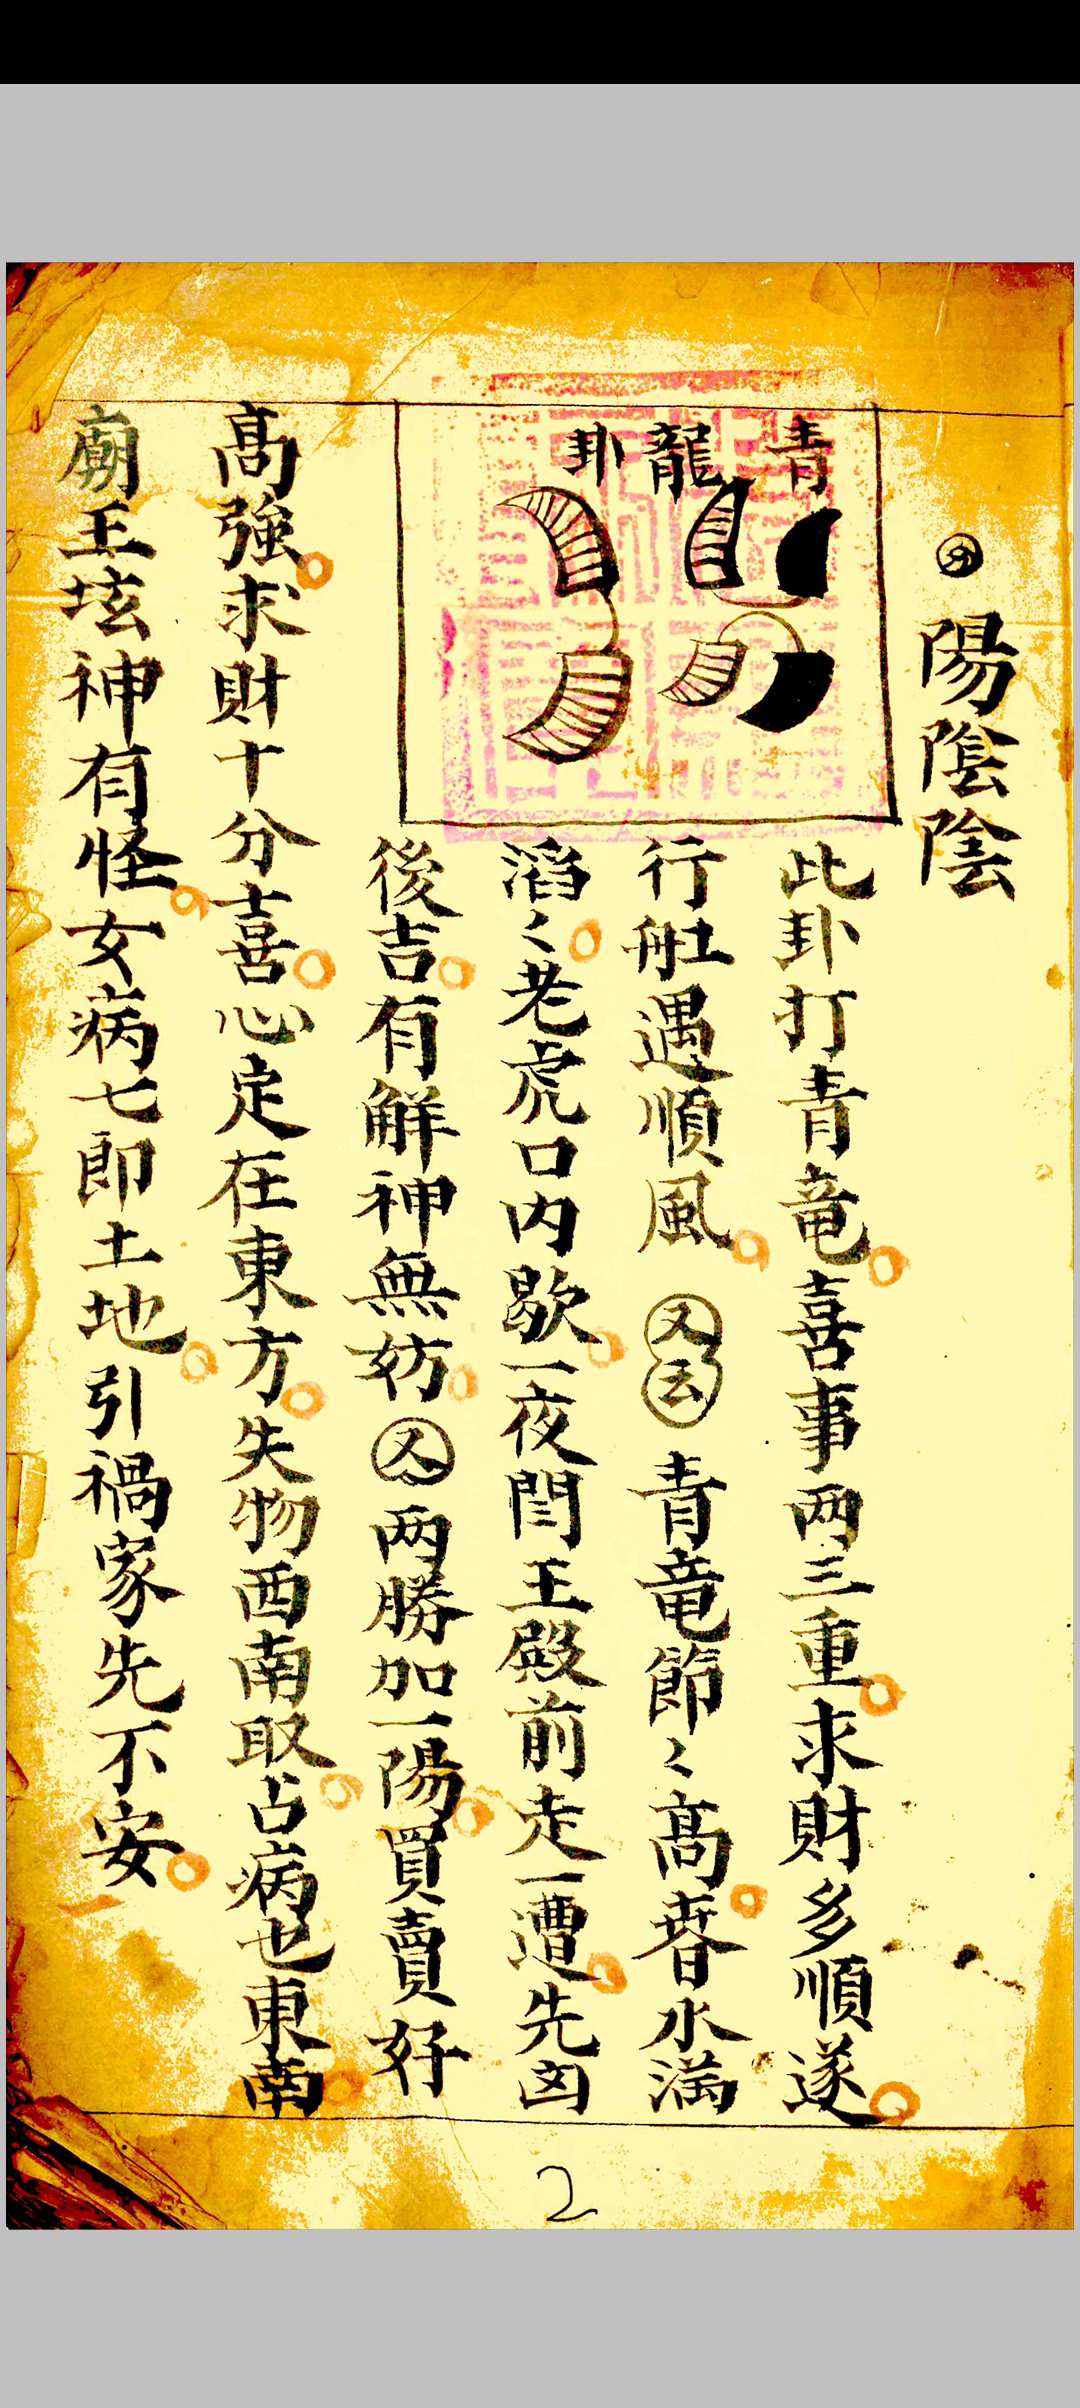 陽陰陰
青龍卦
此卦打青竜喜事两三重求財多順遂
行船遇順風 又云 青竜節々高春水滿
滔々老虎口内歇一夜閆王殿前走一遭先凶
後吉有解神無妨 又 两勝加一陽買賣好
高強求財十分喜心定在東方失物西南取占病也東南
廟王垓神有怪女病七即土地引禍家先不安
2